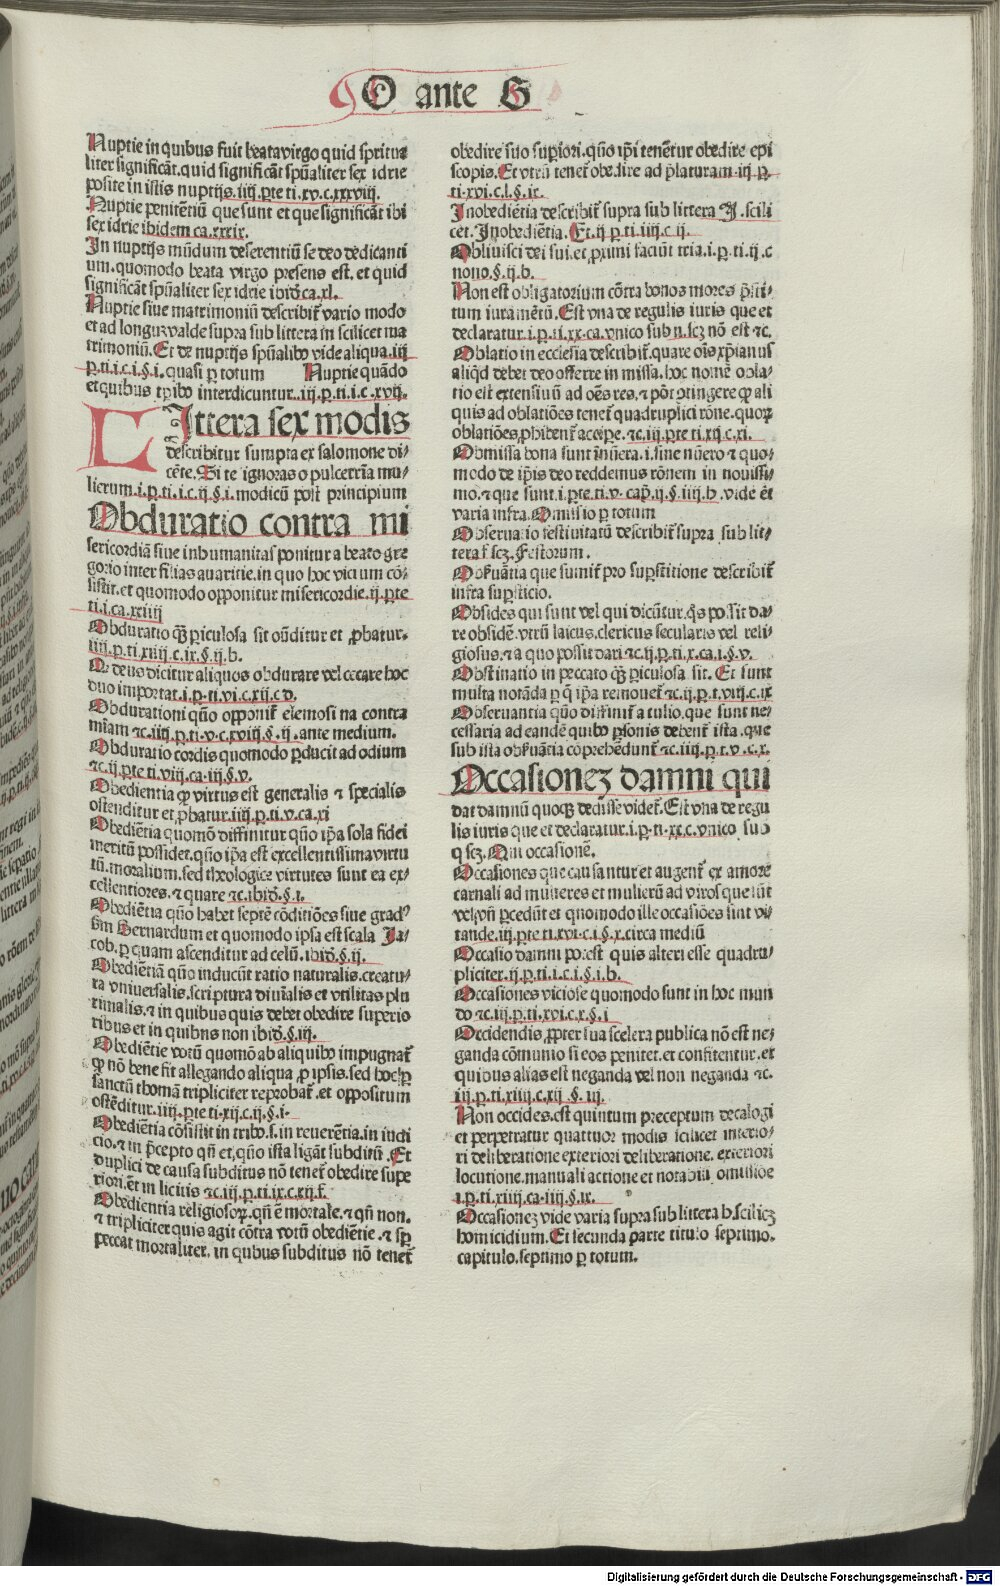 O ante G
Nuptie in quibus fuit beata virgo quid spritua
liter significāt. quid significāt spūaliter sex idrie
posite in istis nuptijs. iiij. pte ti. xv. c. xxxviij.
Nuptie penitētiū que sunt et que significāt ibi
sex idrie ibidem ca. xxxix.
In nuptijs mūdum deserentiū se deo dedicanti
um. quomodo beata virgo presens est. et quid
significāt spūaliter sex idrie ibidē ca. xl.
Nuptie siue matrimoniū describit᷑ vario modo
et ad longuz valde supra sub littera m scilicet ma
trimoniū. Et de nuptijs spūalibꝰ vide aliqua. iij
p. ti. i. c. i. §. i. quasi ꝑ totum Nuptie quādo
et quibus tpibꝰ interdicuntur. iij. p. ti. i. c. xvij.
LIttera sex modis
describitur sumpta ex salomone di⸗
cēte. Si te ignoras o pulcerria mu⸗
lierum. i. p. ti. i. c. ij §. i. modicū post principium
Obduratio contra mi
sericordiā siue inhumanitas ponitur a beato gre
gorio inter filias auaritie. in quo hoc vicium cō⸗
sistit. et quomodo opponitur misericordie. ij. pte
ti. i. ca. xxiiij
Obduratio qꝫ ꝑiculosa sit oñditur et ꝓbatur.
iiij. p. ti. xiiij. c. ix. §. ij. b.
Or deus dicitur aliquos obdurare vel cecare hoc
duo importat. i. p. ti. vi. c. xij. c d.
Obdurationi quō opponit᷑ elemosi na contra
mīam ⁊c. iiij. p. ti. v. c. xviij. §. ij. ante medium.
Obduratio cordis quomodo ꝑducit ad odium
⁊c. ij. pte ti. viij. ca. iij. §. v.
Obedientia ꝙ virtus est generalis ⁊ specialis
ostenditur et ꝓbatur. iiij. p. ti. v. ca. xi
Obediētia quomō diffinitur quō ipa sola fidei
meritū possidet. quō ipa est excellentissima virtu
tū. moralium. sed theologice virtutes sunt ea ex⸗
cellentiores. ⁊ quare ⁊c. ibidē. §. i.
Obediētia quō habet septē cōditiōes siue gradꝰ
sm Bernardum et quomodo ipsa est scala Ja⸗
cob. ꝑ quam ascenditur ad celū. ibidē. §. ij.
Obediētiā quō inducūt ratio naturalis. creatu⸗
ra vniuersalis. scriptura diuīalis et vtilitas plu
rimalis. ⁊ in quibus quis debet obedire superio
ribus et in quibus non ibidē. §. iij.
Obediētie votū quomō ab aliquibꝰ impugnat᷑
ꝙ nō bene fit allegando aliqua ꝓ ipsis. sed hoc ꝑ
sanctū thomā tripliciter reprobat᷑. et oppositum
ostēditur. iiij. pte ti. xij. c. ij. §. i.
Obediētia cōsistit in tribꝰ. s. in reuerētia. in iudi
cio. ⁊ in p̄cepto qn̄ et, quō ista ligāt subditū. Et
duplici de causa subditus nō tenet᷑ obedire supe
riori. et in licitis ⁊c. iij. p. ti. ix. c. xij. f.
Obedientia religiosoꝝ. qn̄ ē mortale. ⁊ qn̄ non.
⁊ tripliciter quis agit cōtra votū obediētie. ⁊ sp
peccat mortaliter. in quibus subditus nō tenet᷑
obedire suo superiori. quō ipi tenēt᷑ur obedire epi
scopis. Et vtrū tenet᷑ obedire ad p̄laturam. iij p.
ti. xvi. c. i. §. ix.
Inobediētia describit᷑ supra sub littera J. scili
cet. Inobedientia. Et. ij p. ti. iiij. c ij.
Obliuisci dei sui. et ꝓximi faciūt tria. i. p. ti. ij. c
nono. §. ij. b.
Non est obligatorium cōtra bonos mores p̄sti⸗
tum iuramētū. Est vna de regulis iuris que et
declaratur. i. p. ti. xx. ca. vnico sub n. scz nō est ⁊c.
Oblatio in ecclesia describit᷑. quare oīs xp̄ianus
aliqd debet deo offerre in missa. hoc nomē obla⸗
tio est extensiuū ad oēs res. ⁊ pōt ꝯtingere ꝙ ali
quis ad oblatiōes tenet᷑ quadruplici rōne. quoꝝ
oblatiōes ꝓhibent᷑ accipe. ⁊c. iij. pte ti. xij. c. xi.
Obmissa bona sunt īnūera. i. sine nūero ⁊ quo⸗
modo de ipis deo reddemus rōnem in nouissi⸗
mo. ⁊ que sunt. i. pte. ti. v. cap. ij. §. iiij. b. vide ēt
varia infra. Omissio ꝑ totum
Obseruatio festiuitatū describit᷑ supra sub lit⸗
tera f scz. Festorum.
Obſuātia que sumit᷑ pro suꝑstitione describit᷑
infra suꝑsticio.
Obsides qui sunt vel qui dicūtur. qs possit da⸗
re obsidē. vtrū laicus. clericus secularis vel reli⸗
giosus. ⁊ a quo possit dari ⁊c. ij. p. ti. x. ca. i. §. v.
Obstinatio in peccato qꝫ ꝑiculosa sit. Et sunt
multa notāda ꝑ q̄ ipa remouet᷑ ⁊c. ij. p. t. viij. c. ix
Obseruantia quō diffinit᷑ a tulio. que sunt ne⸗
cessaria ad eandē quibꝰ ꝑsonis debent᷑ ista. que
sub ista obſuātia cōprehēdunt᷑ ⁊c. iiij. p. t. v. c. x.
Occasionez damni qui
dat damnū quoqꝫ dedisse videt᷑. Est vna de regu
lis iuris que et declaratur. i. p. ti. xx. c. vnico, sub
q scz. Qui occasionē.
Occasiones que causantur et augent᷑ ex amore
carnali ad mulieres et mulierū ad viros que sūt
vel vn̄ ꝓcedūt et quomodo ille occasiōes sint vi⸗
tande. iij. pte ti. xvi. c. i. §. x. circa mediū
Occasio damni potest quis alteri esse quadru⸗
pliciter. ij. p. ti. i. c. i. §. i. b.
Occasiones viciose quomodo sunt in hoc mun
do ⁊c. iij. p. ti. xvi. c. x. §. i
Occidendis ꝓpter sua scelera publica nō est ne⸗
ganda cōmunio si eos penitet. et confitentur. et
quibus alias est neganda vel non neganda ⁊c.
iij. p. ti. xiiij. c. xij. §. iij.
Non occides. est quintum preceptum decalogi
et perpetratur quattuor modis scilicet interio⸗
ri deliberatione exteriori deliberatione. exteriori
locutione. manuali actione et notabili omissiōe
i. p. ti. xiiij. ca. iiij. §. ix.
Occasionez vide varia supra sub littera b. scilicz
homicidium. Et secunda parte titulo septimo.
capitulo. septimo ꝑ totum.
Digitalisierung gefördert durch die Deutsche Forschungsgemeinschaft - DFG